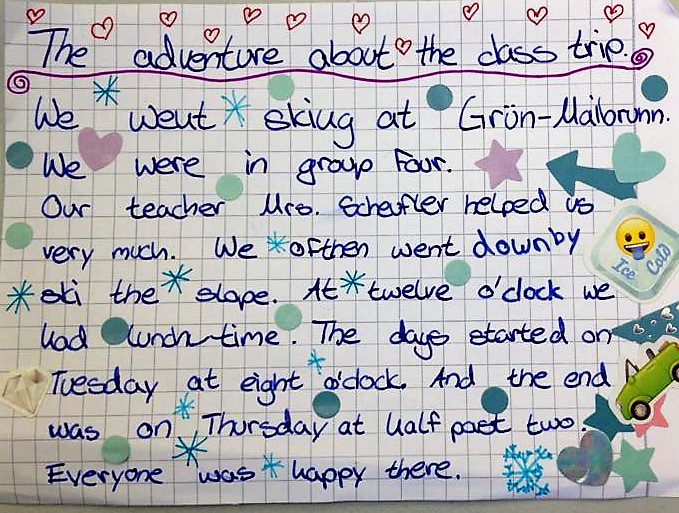 The adventure about the class trip.
We went skiug at Grün-Mailbrunn.
We were in group four.
Our teacher Mrs. Scheufler helped us
very much. We ofthen went down by
ski the slope. At twelve o'clock we
had lunch-time. The days started on
Tuesday at eight o'clock. And the end
was on Thursday at half past two.
Everyone was happy there.
Ice Cold